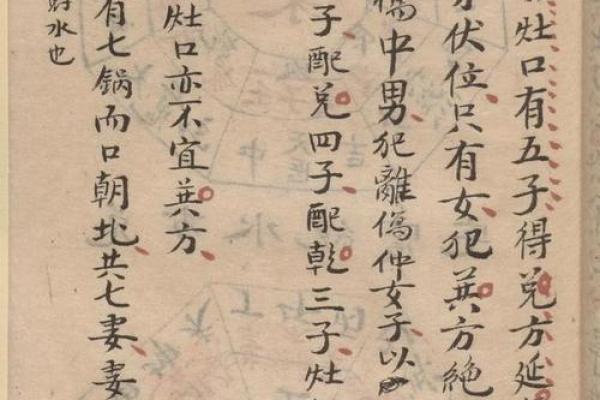 灶口有五子得兌方延
伏位只有女犯巽方絕
傷中男犯離傷仲女子以
子配兌四子配乾三子灶
灶口亦不宜巽方
有七鍋而口朝北共七妻妻
水也